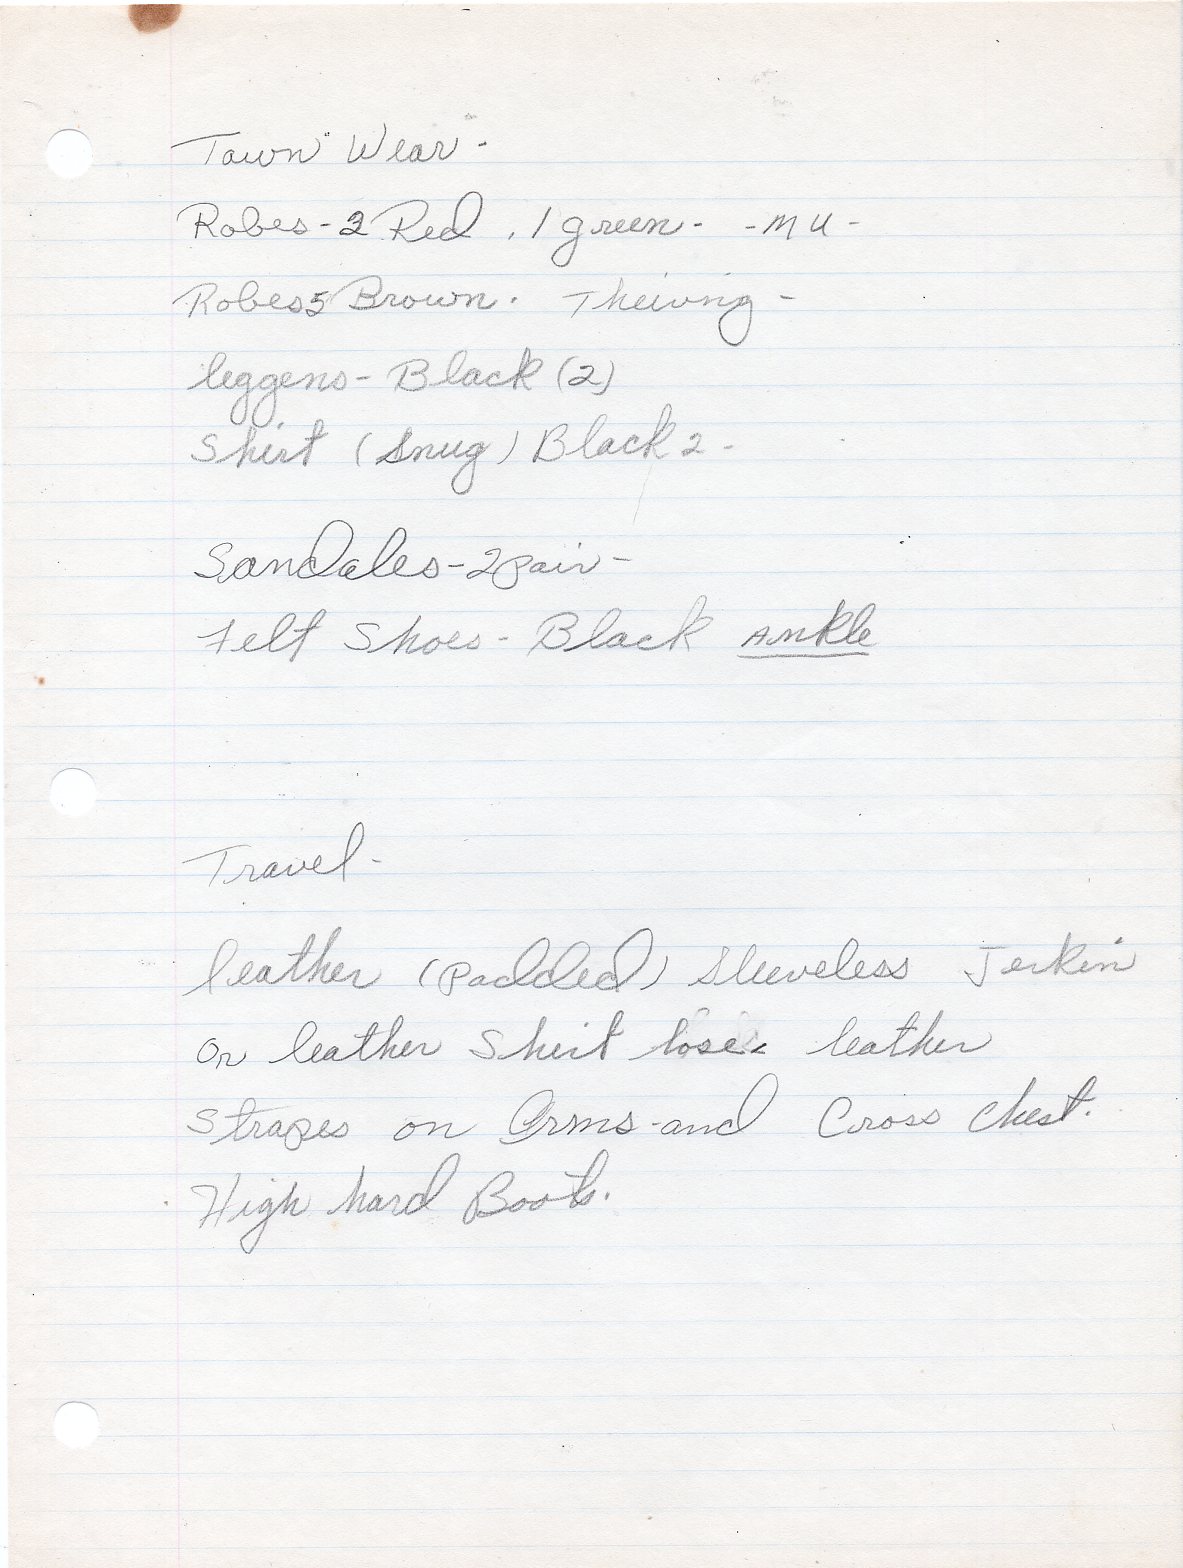 Town Wear -
Robes - 2 Red , 1 green - - MU -
Robes 5 Brown . Theiving -
leggens - Black (2)
Shirt (snug) Black 2 -
Sandales - 2 pair -
Felt Shoes - Black Ankle
Travel -
leather (padded) Sleeveless Jerkin
or leather Shirt lose. leather
Strapes on Arms - and Cross Chest.
High hard Boots.